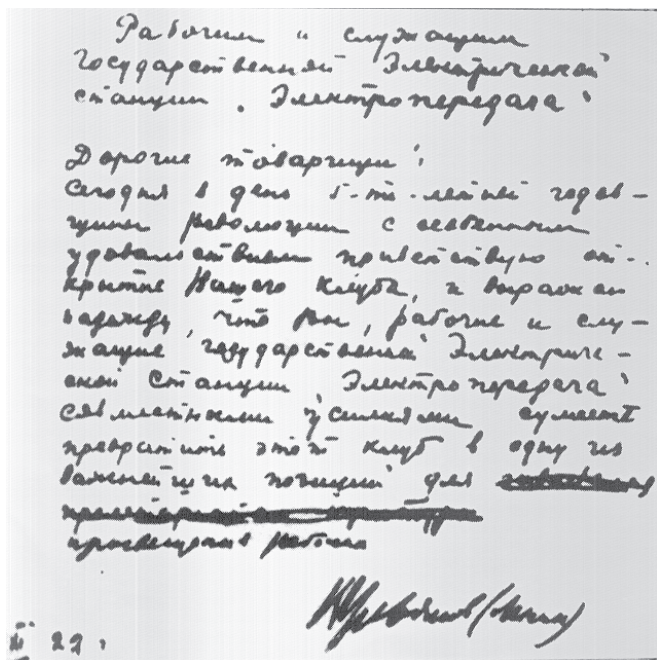 Рабочим и служащим
Государственной Электрической
станции „Электропередача“
Дорогие товарищи!
Сегодня в день 5-ти-летней годов-
щины революции с особенным
удовольствием приветствую от-
крытие Вашего клуба, и выражаю
надежду, что Вы, рабочие и слу-
жащие государственной Электриче-
ской Станции „Электропередача“
совместными усилиями сумеете
превратить этот клуб в одну из
важнейших позиций для
просвещения рабочих
В Ульянов (Ленин)
22.